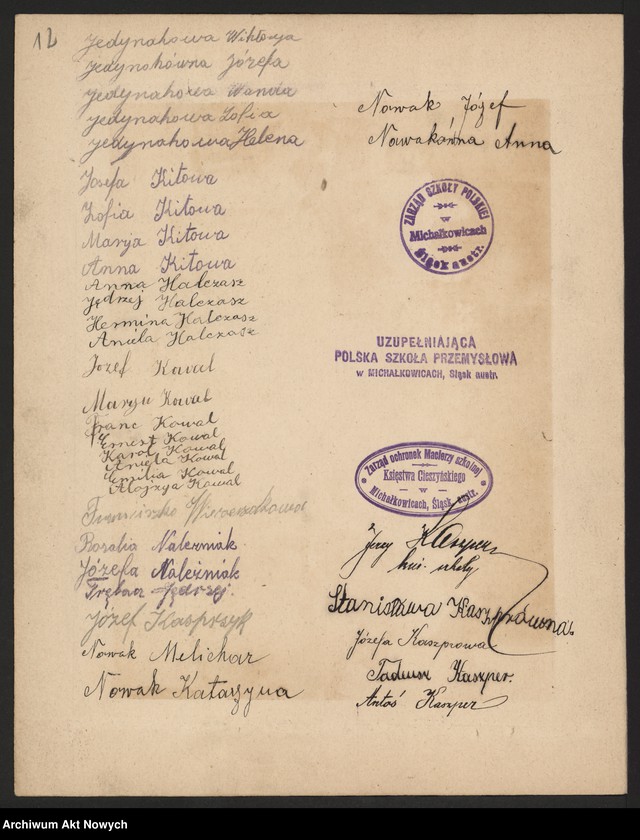 12
Jedynakowa Wiktorya
Jedynakówna Józefa
Jedynakowa Wanda
Jedynakowa Zofia
Jedynakowa Helena
Josefa Kitowa
Zofia Kitowa
Maryja Kitowa
Anna Kitowa
Anna Halczasz
Jędrzej Halczasz
Hermina Halczasz
Aniela Halczasz
Jozef Kawul
Marya Kowal
Franc Kowal
Ernest Kowal
Karol Kowal
Aniela Kowal
Emilia Kowal
Alojzya Kowal
Rosalia Nalezniak
Józefa Nalezniak
Trębacz Jędrzej.
Józef Kasprzyk
Nowak Melichar
Nowak Katarzyna
Nowak Józef
Nowakówna Anna
ZARZĄD SZKOŁY POLSKIEJ
w
Michałkowicach
Śląsk austr.
UZUPEŁNIAJĄCA
POLSKA SZKOŁA PRZEMYSŁOWA
w MICHAŁKOWICACH, Śląsk austr.
Zarząd ochronek Macierzy szkolnej
Księstwa Cieszyńskiego
w
Michałkowicach, Śląsk austr.
Jerzy Kaszper
kier. szkoły
Stanisława Kaszprówna.
Józefa Kaszprowa
Tadeusz Kaszper.
Antoś Kaszper
Archiwum Akt Nowych